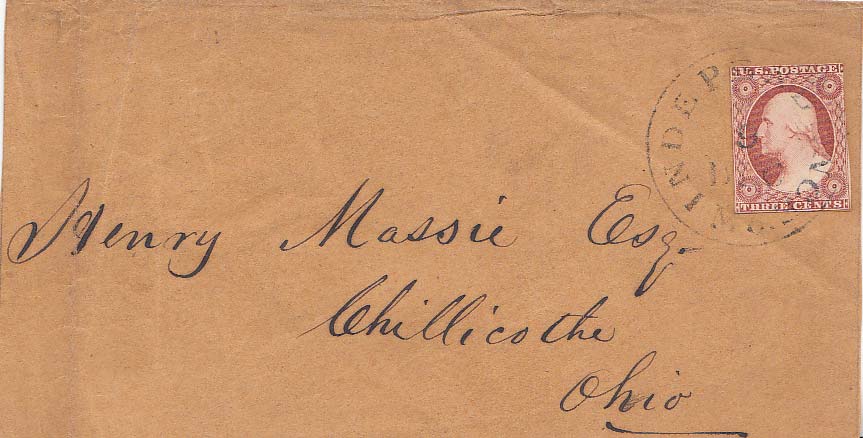 U.S. POSTAGE
THREE CENTS
INDEP
Henry Massie Esq.
Chillicothe
Ohio